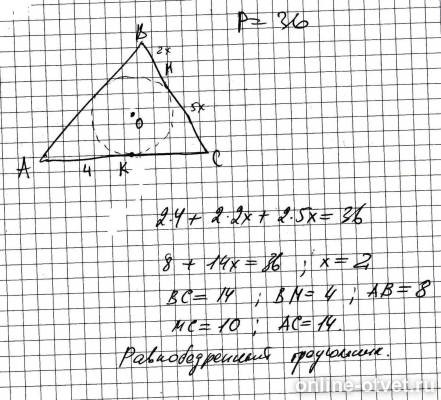 P = 36
B
2x
M
5x
O
A
4
K
C
2·4 + 2·2x + 2·5x = 36
8 + 14x = 36 ; x = 2
BC = 14 ; BM = 4 ; AB = 8
MC = 10 ; AC = 14.
Равнобедренный треугольник.
online-otvet.ru